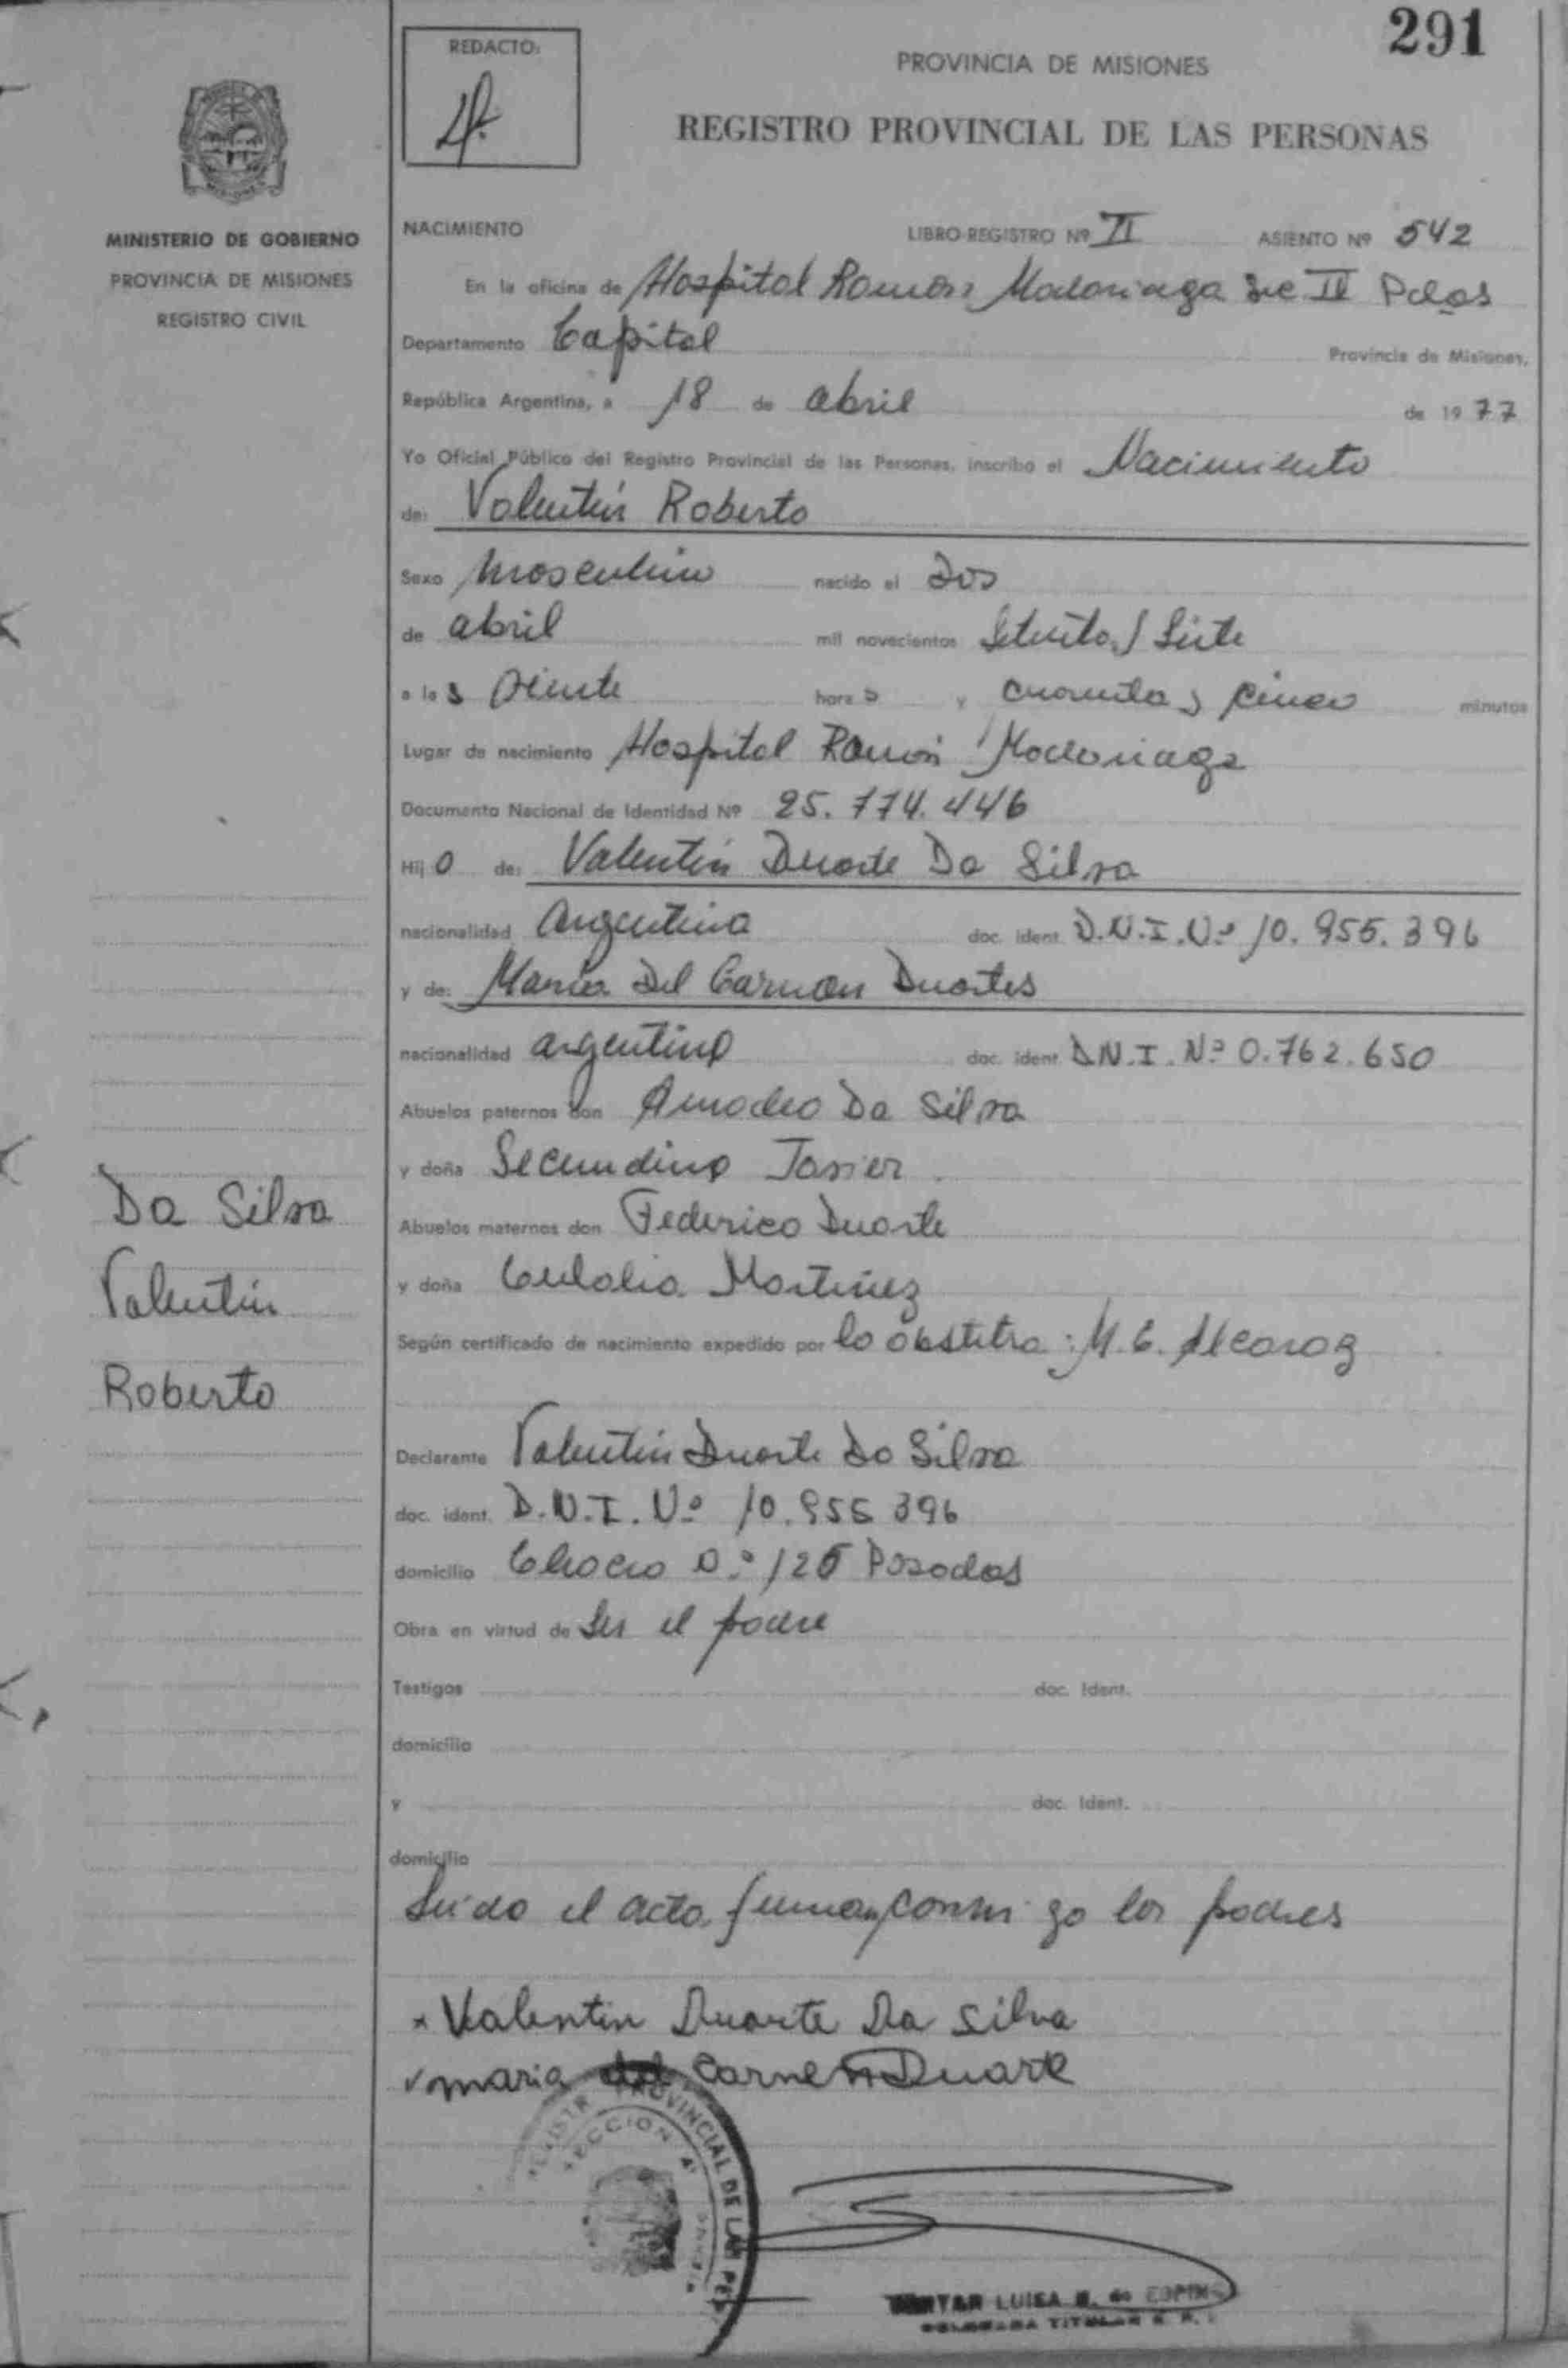 291
REDACTO:
PROVINCIA DE MISIONES
REGISTRO PROVINCIAL DE LAS PERSONAS
MINISTERIO DE GOBIERNO
PROVINCIA DE MISIONES
REGISTRO CIVIL
NACIMIENTO LIBRO-REGISTRO Nº II ASIENTO Nº 542
En la oficina de Hospital Ramón Madariaga II
Departamento Capital Provincia de Misiones,
República Argentina, a 18 de abril de 1977
Yo Oficial Público del Registro Provincial de las Personas, inscribo el Nacimiento
de: Valentín Roberto
Sexo Masculino nacido el dos
de abril mil novecientos Setenta y Siete
a las hora s y cuarenta y cinco minutos
Lugar de nacimiento Hospital Ramón Madariaga
Documento Nacional de Identidad Nº 25.774.446
Hijo de: Valentín Duarte Da Silva
nacionalidad argentina doc. ident. D.N.I. Nº 10.955.396
y de: María Del Carmen Duartes
nacionalidad argentina doc. ident. D.N.I. Nº 0.762.650
Abuelos paternos don Amadeo Da Silva
y doña Secundina Javier
Abuelos maternos don Federico Duarte
y doña Eulalia Martínez
Según certificado de nacimiento expedido por la obstetra: M. E. Alcaraz
Da Silva
Valentín
Roberto
Declarante Valentín Duarte Da Silva
doc. ident. D.N.I. Nº 10.955 396
domicilio Chaco Nº 125 Posadas
Obra en virtud de Ser el padre
Testigos doc. Ident.
domicilio
y doc. Ident.
domicilio
Leído el acta firman conmigo los padres
Valentin Duarte Da Silva
maria del Carmen Duarte
REGISTRO PROVINCIAL DE LAS PER
SECCION 4ª
LUISA de ESPIN
TITULAR